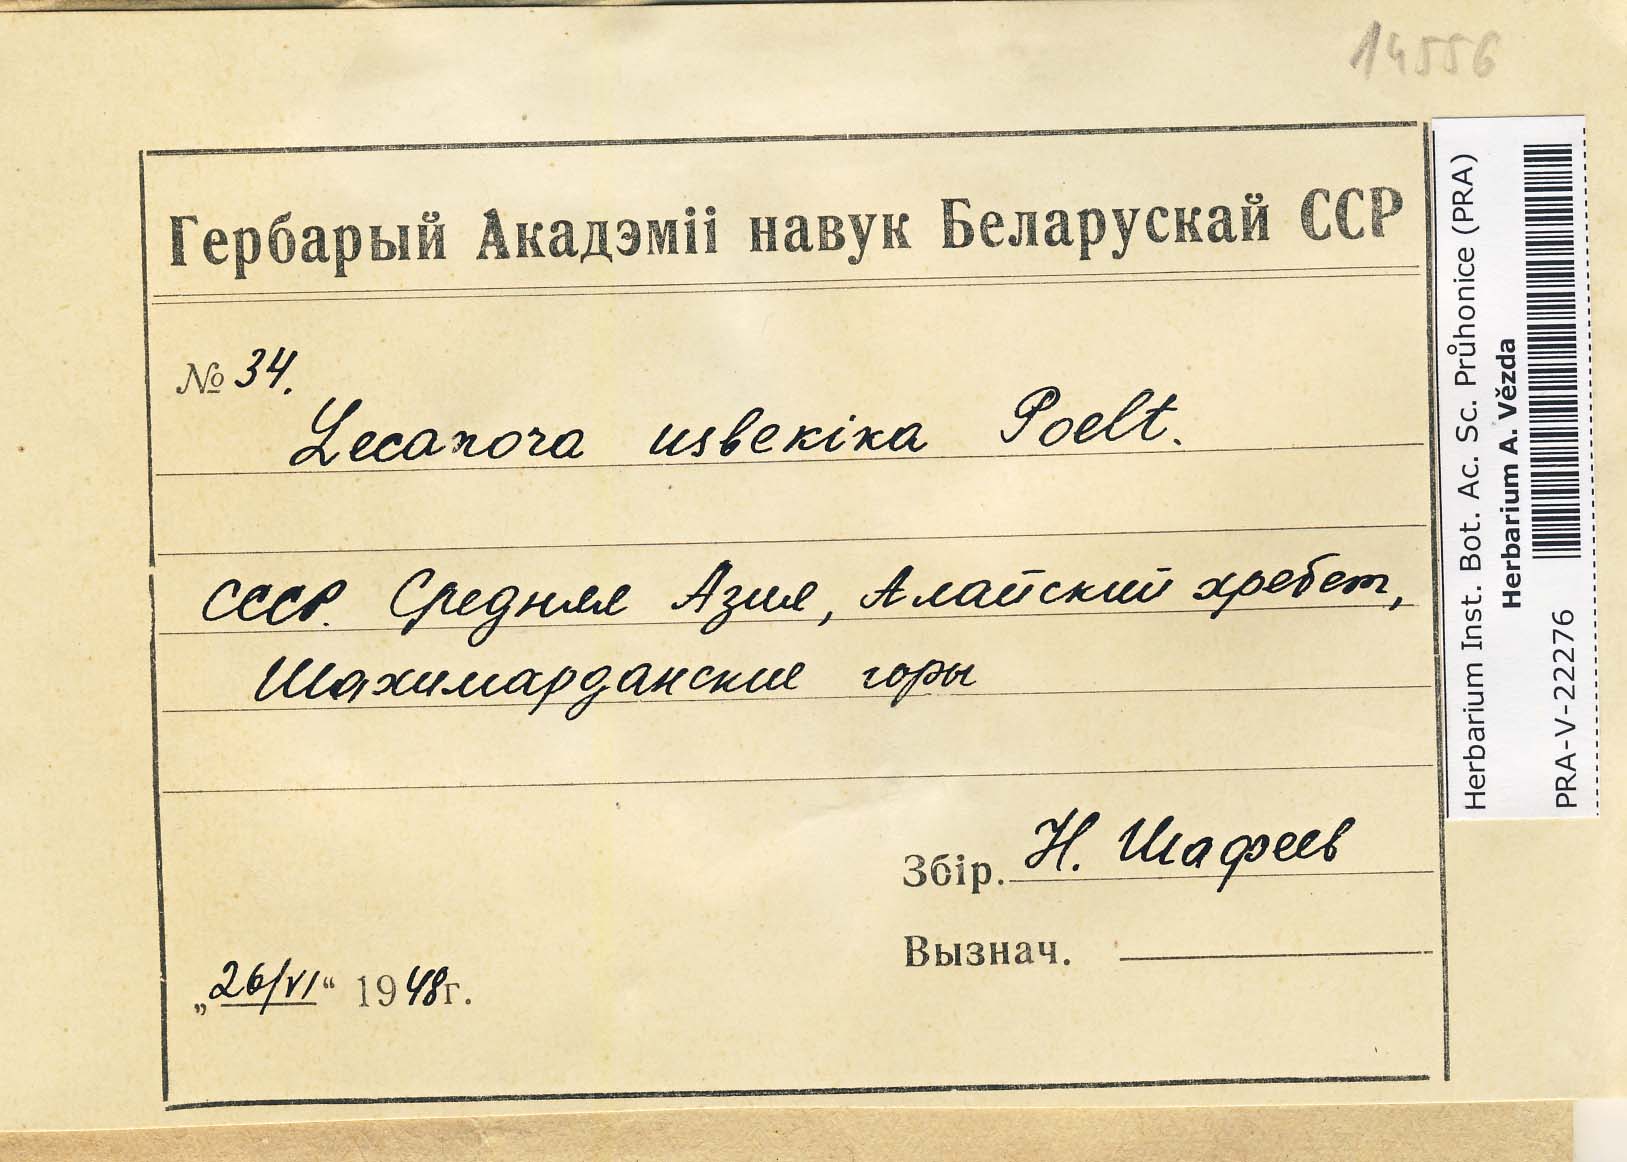 14556
Гербарый Акадэміі навук Беларускай ССР
№ 34.
Lecanora usbekika Poelt.
СССР. Средняя Азия, Алайский хребет,
Шахимарданские горы
Збір. Н. Шафеев
Вызнач.
„26/VI“ 1948г.
Herbarium Inst. Bot. Ac. Sc. Průhonice (PRA)
Herbarium A. Vězda
PRA-V-222276